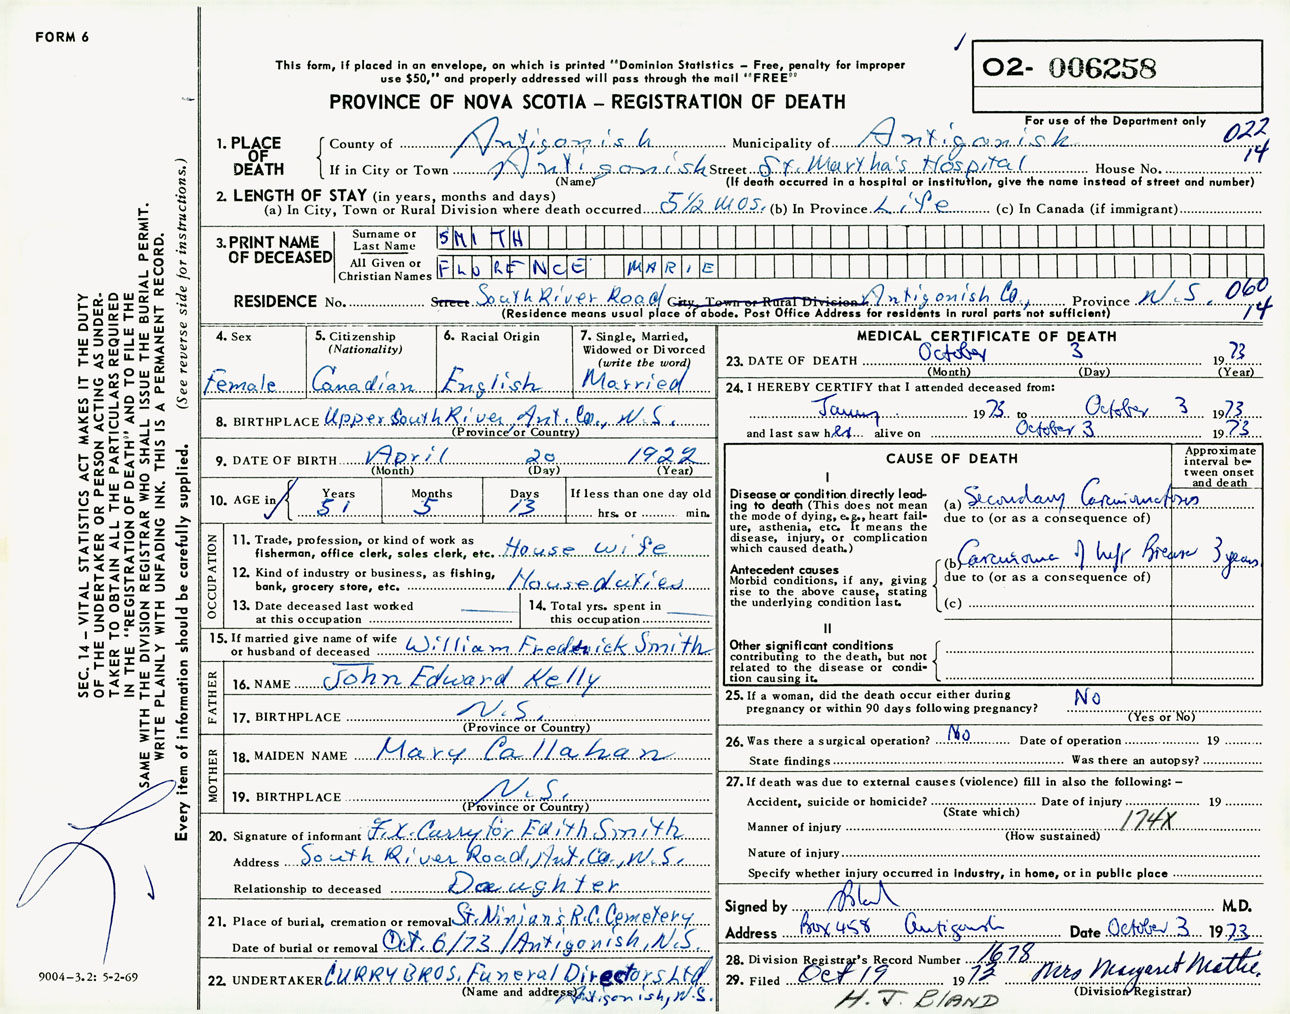 FORM 6
This form, if placed in an envelope, on which is printed "Dominion Statistics – Free, penalty for improper
use $50," and properly addressed will pass through the mail "FREE"
PROVINCE OF NOVA SCOTIA – REGISTRATION OF DEATH
02- 006258
For use of the Department only
022
14
1. PLACE OF DEATH
County of Antigonish Municipality of Antigonish
If in City or Town Antigonish Street St. Martha's Hospital House No.
(Name) (If death occurred in a hospital or institution, give the name instead of street and number)
2. LENGTH OF STAY (in years, months and days)
(a) In City, Town or Rural Division where death occurred 5½ mos. (b) In Province Life (c) In Canada (if immigrant)
3. PRINT NAME OF DECEASED
Surname or Last Name SMITH
All Given or Christian Names FLORENCE MARIE
RESIDENCE No. Street South River Road City, Town or Rural Division Antigonish Co., Province N.S. 060
14
(Residence means usual place of abode. Post Office Address for residents in rural parts not sufficient)
4. Sex
Female
5. Citizenship
(Nationality)
Canadian
6. Racial Origin
English
7. Single, Married,
Widowed or Divorced
(write the word)
Married
8. BIRTHPLACE Upper South River, Ant. Co., N.S.
(Province or Country)
9. DATE OF BIRTH April 20 1922
(Month) (Day) (Year)
10. AGE in
Years Months Days If less than one day old
51 5 13 hrs. or min.
OCCUPATION
11. Trade, profession, or kind of work as
fisherman, office clerk, sales clerk, etc. House wife
12. Kind of industry or business, as fishing,
bank, grocery store, etc. House duties
13. Date deceased last worked
at this occupation
14. Total yrs. spent in
this occupation
15. If married give name of wife
or husband of deceased William Frederick Smith
FATHER
16. NAME John Edward Kelly
17. BIRTHPLACE N.S.
(Province or Country)
MOTHER
18. MAIDEN NAME Mary Callahan
19. BIRTHPLACE N.S.
(Province or Country)
20. Signature of informant F.X. Curry for Edith Smith
Address South River Road, Ant. Co., N.S.
Relationship to deceased Daughter
21. Place of burial, cremation or removal St. Ninian's R.C. Cemetery
Date of burial or removal Oct. 6/73 / Antigonish, N.S.
22. UNDERTAKER CURRY BROS. Funeral Directors Ltd
(Name and address) Antigonish, N.S.
MEDICAL CERTIFICATE OF DEATH
23. DATE OF DEATH October 3 1973
(Month) (Day) (Year)
24. I HEREBY CERTIFY that I attended deceased from:
1973 to October 3 1973
and last saw her alive on October 3 1973
CAUSE OF DEATH
Approximate
interval be-
tween onset
and death
I
Disease or condition directly lead-
ing to death (This does not mean
the mode of dying, e.g., heart fail-
ure, asthenia, etc. It means the
disease, injury, or complication
which caused death.)
(a) Secondary Carcinomatosis
due to (or as a consequence of)
Antecedent causes
Morbid conditions, if any, giving
rise to the above cause, stating
the underlying condition last.
(b) Carcinoma of Left Breast 3 years
due to (or as a consequence of)
(c)
II
Other significant conditions
contributing to the death, but not
related to the disease or condi-
tion causing it.
25. If a woman, did the death occur either during
pregnancy or within 90 days following pregnancy? No
(Yes or No)
26. Was there a surgical operation? No Date of operation 19
State findings Was there an autopsy?
27. If death was due to external causes (violence) fill in also the following: –
Accident, suicide or homicide? Date of injury 19
(State which)
Manner of injury 174X
(How sustained)
Nature of injury
Specify whether injury occurred in industry, in home, or in public place
Signed by Bland M.D.
Address Box 458 Antigonish Date October 3 1973
28. Division Registrar's Record Number 1678
29. Filed Oct 19 1973 Mrs Margaret Mattie.
(Division Registrar)
H. J. BLAND
SEC. 14 – VITAL STATISTICS ACT MAKES IT THE DUTY
OF THE UNDERTAKER OR PERSON ACTING AS UNDER-
TAKER TO OBTAIN ALL THE PARTICULARS REQUIRED
IN THE "REGISTRATION OF DEATH" AND TO FILE THE
SAME WITH THE DIVISION REGISTRAR WHO SHALL ISSUE THE BURIAL PERMIT.
WRITE PLAINLY WITH UNFADING INK. THIS IS A PERMANENT RECORD.
Every item of information should be carefully supplied. (See reverse side for instructions.)
9004-3.2: 5-2-69